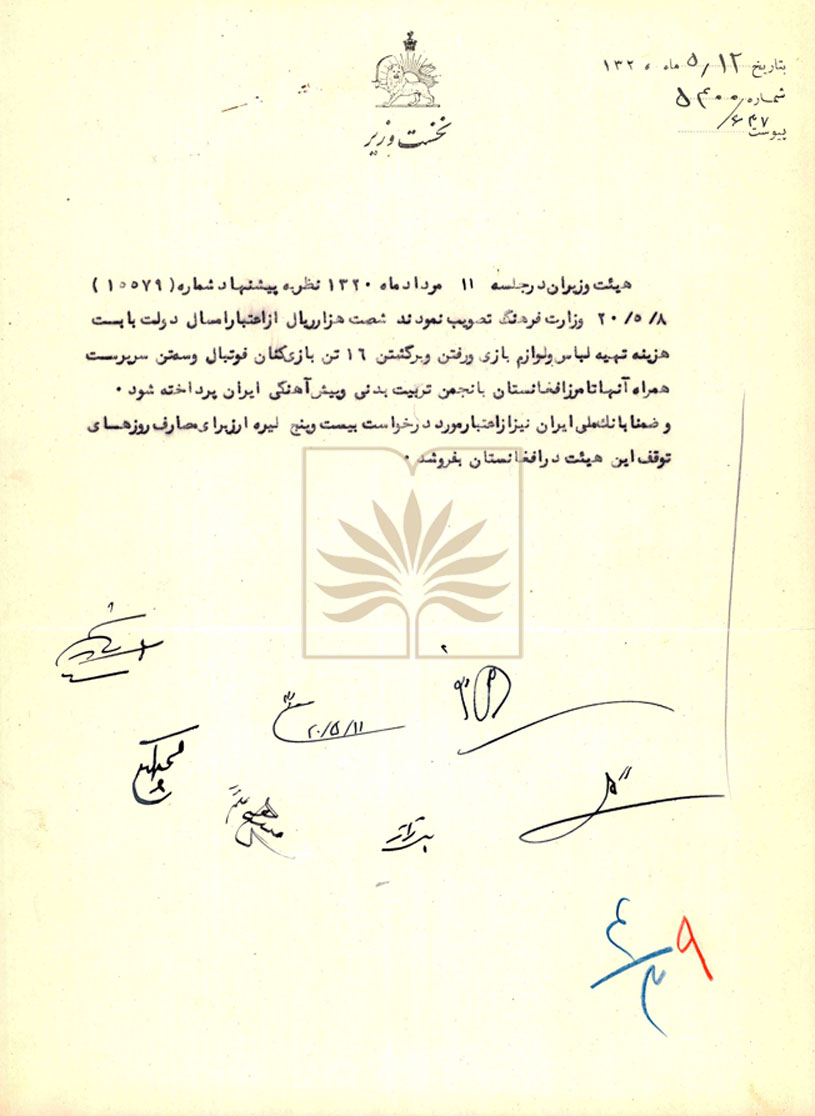 بتاریخ ۵/۱۲ ماه ۱۳۲۰
شماره ۵۴۰۰
پیوست ۶۴۷/
نخست وزیر
هیئت وزیران در جلسه ۱۱ مرداد ماه ۱۳۲۰ نظر به پیشنهاد شماره (۱۰۵۷۹)
۲۰/۵/۸ وزارت فرهنگ تصویب نمودند شصت هزار ریال از اعتبار امسال دولت بابت
هزینه تهیه لباس و لوازم بازی و رفتن و برگشتن ۱۶ تن بازی کنان فوتبال و سه تن سرپرست
همراه آنها تا مرز افغانستان بانجمن تربیت بدنی و پیش آهنگی ایران پرداخته شود .
و ضمنا بانک ملی ایران نیز از اعتبار مورد درخواست بیست و پنج لیره ارز برای مصارف روزهای
توقف این هیئت در افغانستان بفروشد .
۲۰/۵/۱۱
۹